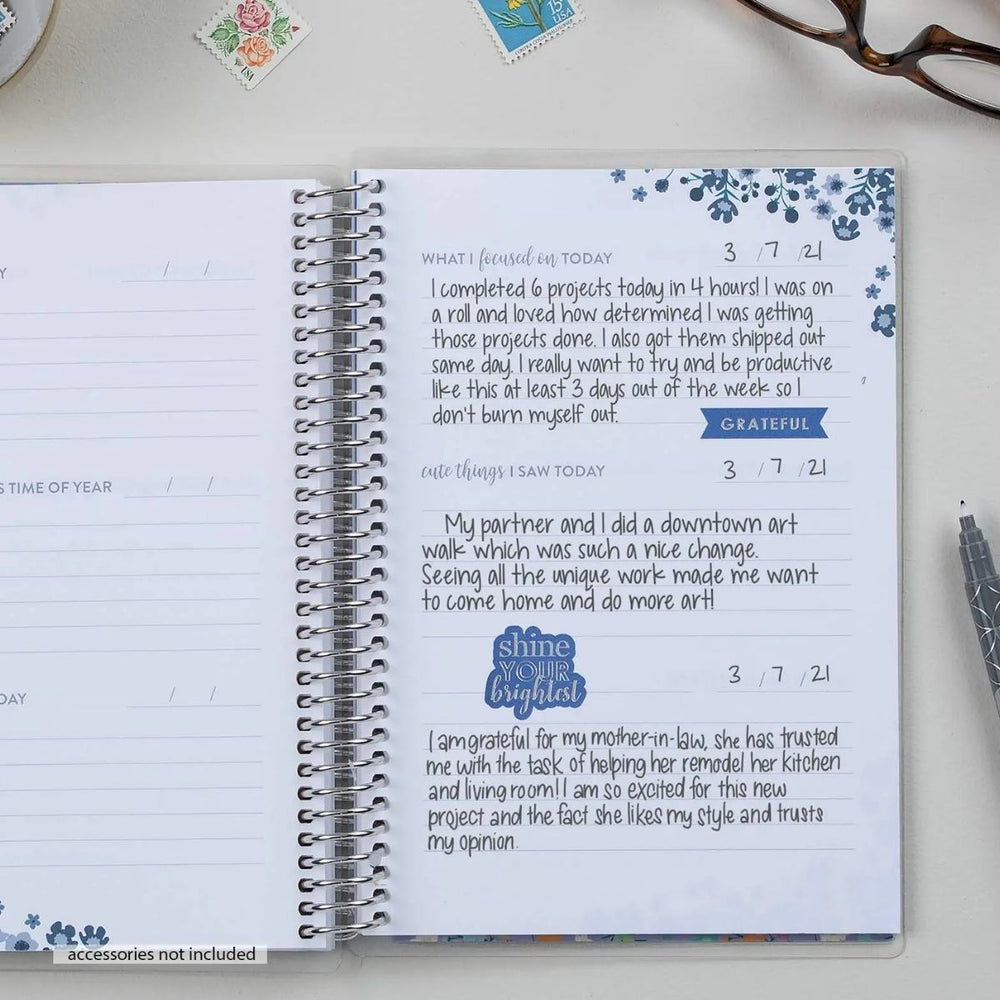 USA
15c
USA
Y / /
S TIME OF YEAR / /
DAY / /
WHAT I focused on TODAY 3 / 7 / 21
I completed 6 projects today in 4 hours! I was on
a roll and loved how determined I was getting
those projects done. I also got them shipped out
same day. I really want to try and be productive
like this at least 3 days out of the week so I
don't burn myself out.
GRATEFUL
cute things I SAW TODAY 3 / 7 / 21
My partner and I did a downtown art
walk which was such a nice change.
Seeing all the unique work made me want
to come home and do more art!
shine
YOUR
brightest
3 / 7 / 21
I am grateful for my mother-in-law, she has trusted
me with the task of helping her remodel her kitchen
and living room! I am so excited for this new
project and the fact she likes my style and trusts
my opinion.
accessories not included